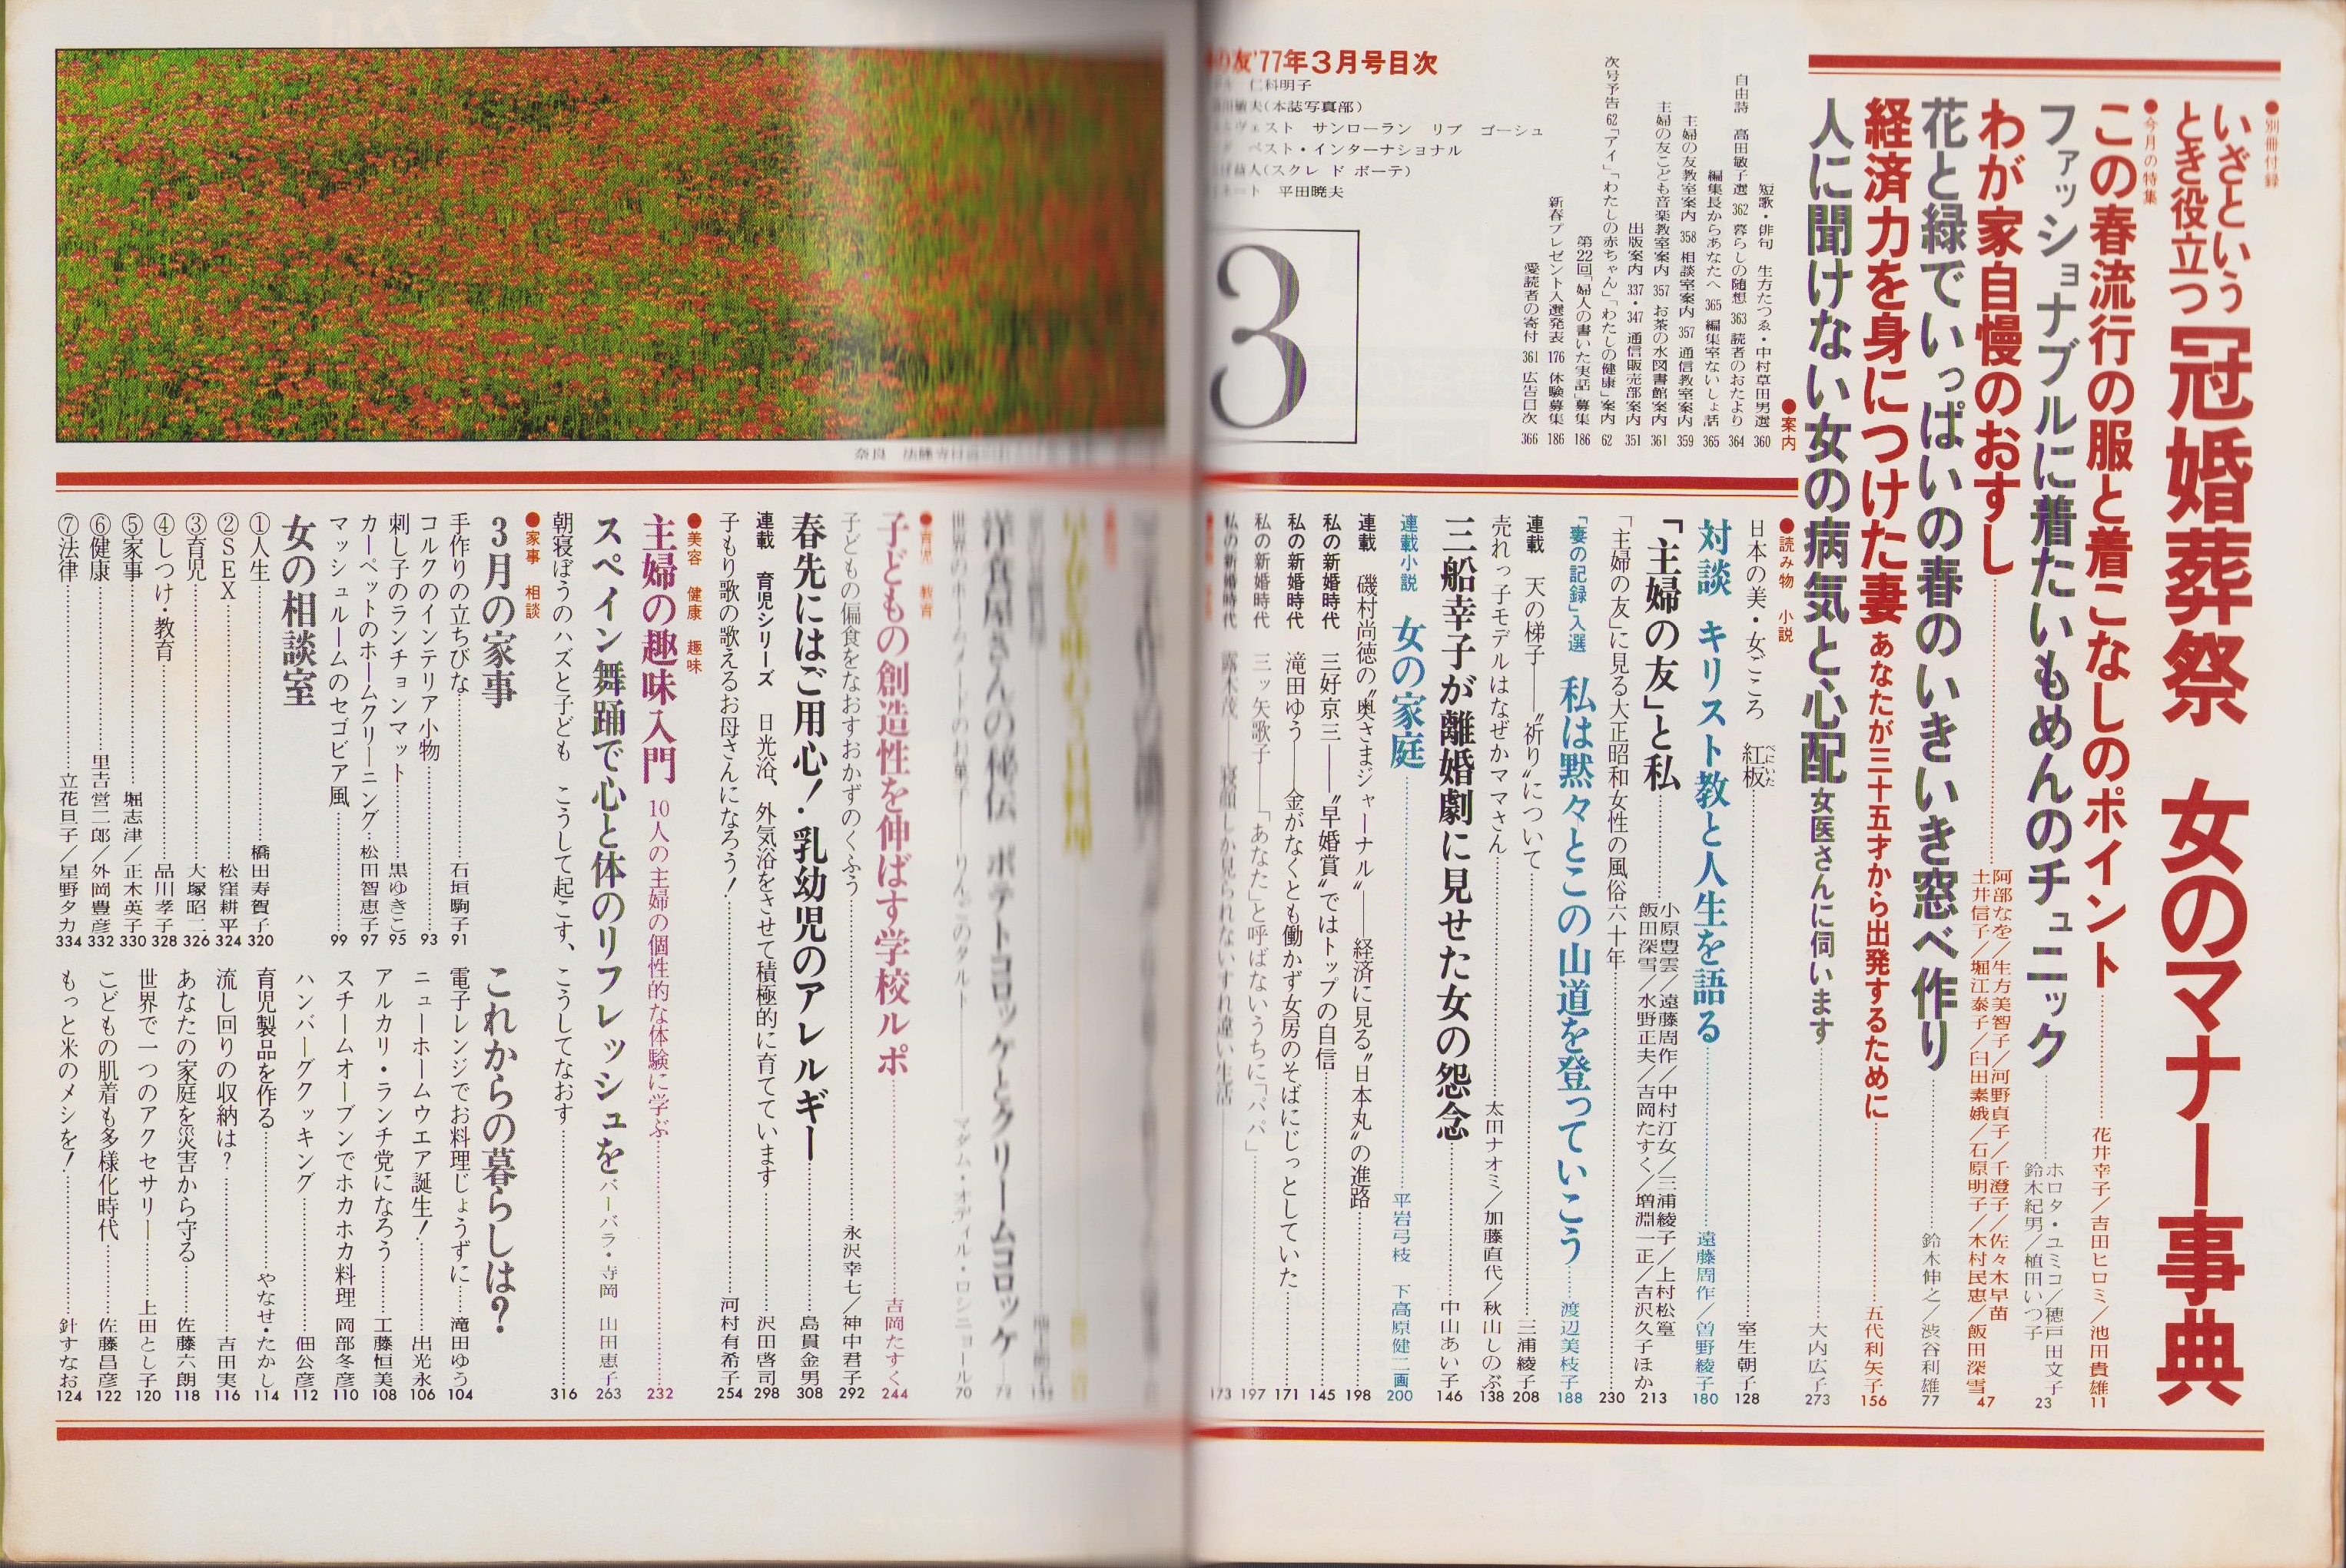 ●別冊付録
いざという
とき役立つ
冠婚葬祭 女のマナー事典
●今月の特集
この春流行の服と着こなしのポイント……花井幸子/吉田ヒロミ/池田貴雄 11
ファッショナブルに着たいもめんのチュニック……ホロタ・ユミコ/穂戸田文子
鈴木紀男/植田いつ子 23
わが家自慢のおすし……阿部なを/生方美智子/河野貞子/千澄子/佐々木早苗
土井信子/堀江泰子/臼田素娥/石原明子/木村民恵/飯田深雪 47
花と緑でいっぱいの春のいきいき窓べ作り……鈴木伸之/渋谷利雄 77
経済力を身につけた妻 あなたが三十五才から出発するために……五代利矢子 156
人に聞けない女の病気と心配 女医さんに伺います……大内広子 273
●案内
短歌・俳句 生方たつゑ・中村草田男選 360
自由詩 高田敏子選 362 暮らしの随想 363 読者のおたより 364
編集長からあなたへ 365 編集室ないしょ話 365
主婦の友教室案内 358 相談室案内 357 通信教室案内 359
主婦の友こども音楽教室案内 357 お茶の水図書館案内 361
出版案内 337・347 通信販売部案内 351
次号予告 62 「アイ」「わたしの赤ちゃん」「わたしの健康」案内 62
第22回「婦人の書いた実話」募集 186
新春プレゼント入選発表 176 体験募集 186
愛読者の寄付 361 広告目次 366
の友'77年3月号目次
仁科明子
敏夫(本誌写真部)
ヴェスト サンローラン リブ ゴーシュ
ベスト・インターナショナル
益人(スクレ ド ボーテ)
ネート 平田暁夫
3
●読み物 小説
日本の美・女ごころ 紅板(べにいた)……室生朝子 128
対談 キリスト教と人生を語る……遠藤周作/曽野綾子 180
「主婦の友」と私……小原豊雲/遠藤周作/中村汀女/三浦綾子/上村松篁
飯田深雪/水野正夫/吉岡たすく/増淵一正/吉沢久子ほか 213
「主婦の友」に見る大正昭和女性の風俗六十年……230
「妻の記録」入選 私は黙々とこの山道を登っていこう……渡辺美枝子 188
連載 天の梯子――〝祈り〟について……三浦綾子 208
売れっ子モデルはなぜかママさん……太田ナオミ/加藤直代/秋山しのぶ 138
三船幸子が離婚劇に見せた女の怨念……中山あい子 146
連載小説 女の家庭……平岩弓枝 下高原健二画 200
連載 磯村尚徳の〝奥さまジャーナル〟――経済に見る〝日本丸〟の進路……198
私の新婚時代 三好京三――〝早婚賞〟ではトップの自信……145
私の新婚時代 滝田ゆう――金がなくとも働かず女房のそばにじっとしていた……171
私の新婚時代 三ッ矢歌子――「あなた」と呼ばないうちに「パパ」……197
私の新婚時代 露木茂――寝顔しか見られないすれ違い生活……173
洋食屋さんの秘伝 ポテトコロッケとクリームコロッケ
世界のホームメードのお菓子――りんごのタルト……マダム・オディル・ロシニョール 70
●育児 教育
子どもの創造性を伸ばす学校ルポ……吉岡たすく 244
子どもの偏食をなおすおかずのくふう……永沢幸七/神中君子 292
春先にはご用心!乳幼児のアレルギー……島貫金男 308
連載 育児シリーズ 日光浴、外気浴をさせて積極的に育てています……沢田啓司 298
子もり歌の歌えるお母さんになろう!……河村有希子 254
●美容 健康 趣味
主婦の趣味入門 10人の主婦の個性的な体験に学ぶ……232
スペイン舞踊で心と体のリフレッシュを バーバラ・寺岡 山田恵子 263
朝寝ぼうのハズと子ども こうして起こす、こうしてなおす……316
●家事 相談
3月の家事
手作りの立ちびな……石垣駒子 91
コルクのインテリア小物……93
刺し子のランチョンマット……黒ゆきこ 95
カーペットのホームクリーニング…松田智恵子 97
マッシュルームのセゴビア風……99
女の相談室
①人生……橋田寿賀子 320
②SEX……松窪耕平 324
③育児……大塚昭二 326
④しつけ・教育……品川孝子 328
⑤家事……堀志津/正木英子 330
⑥健康……里吉営二郎/外岡豊彦 332
⑦法律……立花旦子/星野タカ 334
これからの暮らしは?
電子レンジでお料理じょうずに……滝田ゆう 104
ニューホームウエア誕生!……出光永 106
アルカリ・ランチ党になろう……工藤恒美 108
スチームオーブンでホカホカ料理 岡部冬彦 110
ハンバーグクッキング……佃公彦 112
育児製品を作る……やなせ・たかし 114
流し回りの収納は?……吉田実 116
あなたの家庭を災害から守る……佐藤六朗 118
世界で一つのアクセサリー……上田とし子 120
こどもの肌着も多様化時代……佐藤昌彦 122
もっと米のメシを!……針すなお 124